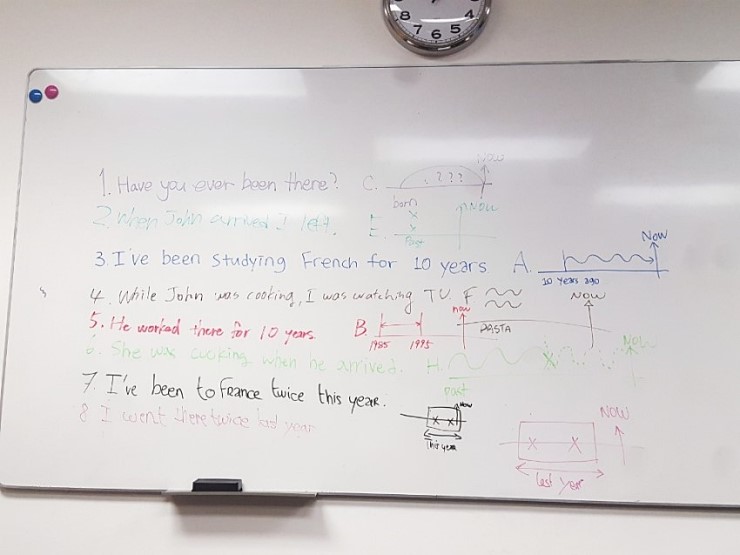 8 7 6 5 4
Now
1. Have you ever been there? C. ? ? ?
born
2. When John arrived I left. E. NOW
Past
Now
3. I've been studying French for 10 years A.
10 years ago
4. While John was cooking, I was watching TV F NOW
now
5. He worked there for 10 years B PASTA
1985 1995
6. She was cooking when he arrived. H. NOW
past
7. I've been to France twice this year. Now
This year
8 I went there twice last year NOW
last year